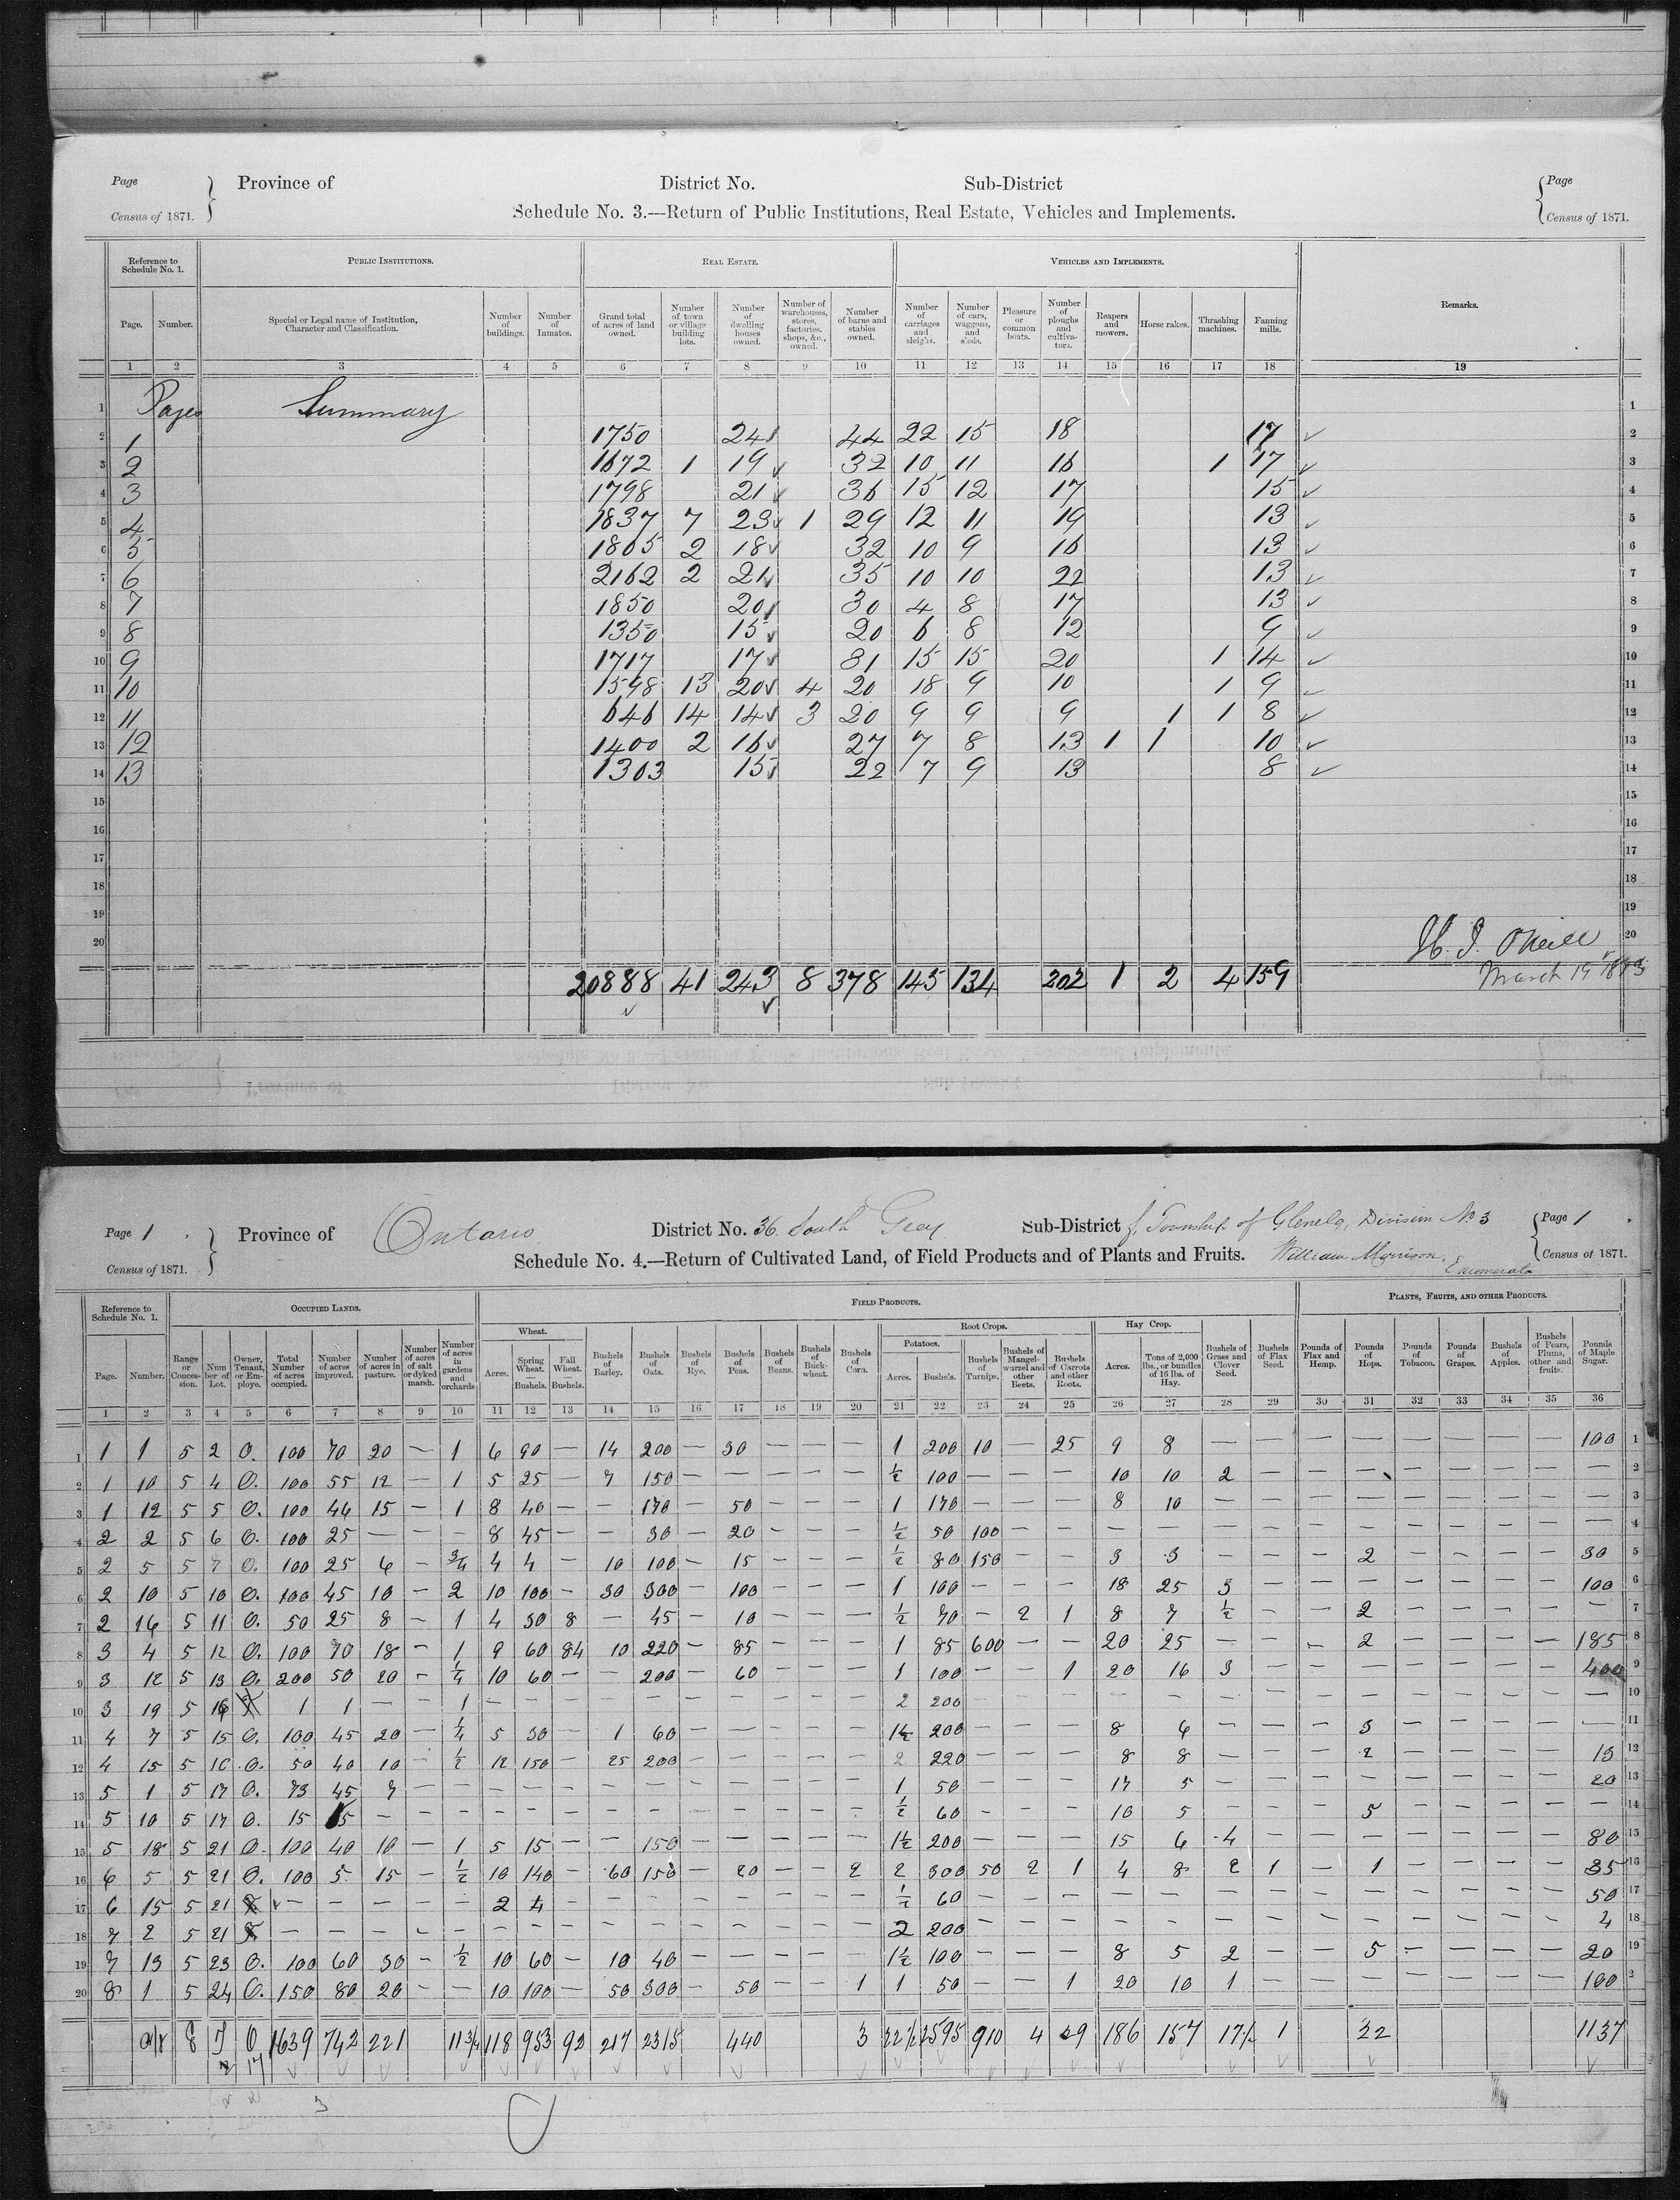 Page
Census of 1871.
Province of
District No.
Sub-District
Page
Census of 1871.
Schedule No. 3.—Return of Public Institutions, Real Estate, Vehicles and Implements.
Reference to Schedule No. 1.
Public Institutions.
Real Estate.
Vehicles and Implements.
Remarks.
Page. Number. Special or Legal name of Institution, Character and Classification. Number of buildings. Number of Inmates. Grand total of acres of land owned. Number of town or village building lots. Number of dwelling houses owned. Number of warehouses, stores, factories, shops, &c., owned. Number of barns and stables owned. Number of carriages and sleighs. Number of cars, waggons, and sleds. Pleasure or common boats. Number of ploughs and cultivators. Reapers and mowers. Horse rakes. Thrashing machines. Fanning mills.
1 2 3 4 5 6 7 8 9 10 11 12 13 14 15 16 17 18 19
1 Pages Summary 1
2 1 1750 24 44 22 15 18 17 2
3 2 1672 1 19 32 10 11 16 1 17 3
4 3 1798 21 36 15 12 17 15 4
5 4 1837 7 23 1 29 12 11 19 13 5
6 5 1805 2 18 32 10 9 16 13 6
7 6 2162 2 21 35 10 10 22 13 7
8 7 1850 20 30 4 8 17 13 8
9 8 1350 15 20 6 8 12 9 9
10 9 1717 17 31 15 15 20 1 14 10
11 10 1598 13 20 4 20 18 9 10 1 9 11
12 11 646 14 14 3 20 9 9 9 1 1 8 12
13 12 1400 2 16 27 7 8 13 1 1 10 13
14 13 1303 15 22 7 9 13 8 14
15 15
16 16
17 17
18 18
19 19
20 20
H. J. O'Neill
March 19 1873
20888 41 243 8 378 145 134 202 1 2 4 159
Page 1
Census of 1871.
Province of Ontario
District No. 36 South Grey
Sub-District f, Township of Glenelg, Division No 3
Page 1
Census of 1871.
Schedule No. 4.—Return of Cultivated Land, of Field Products and of Plants and Fruits. William Morrison, Enumerator
Reference to Schedule No. 1.
Occupied Lands.
Field Products.
Plants, Fruits, and other Products.
Wheat.
Root Crops.
Potatoes.
Hay Crop.
Page. Number. Range or Concession. Number of Lot. Owner, Tenant, or Employe. Total Number of acres occupied. Number of acres improved. Number of acres in pasture. Number of acres of salt or dyked marsh. Number of acres in gardens and orchards. Acres. Spring Wheat.—Bushels. Fall Wheat.—Bushels. Bushels of Barley. Bushels of Oats. Bushels of Rye. Bushels of Peas. Bushels of Beans. Bushels of Buckwheat. Bushels of Corn. Acres. Bushels. Bushels of Turnips. Bushels of Mangel-wurzel and other Beets. Bushels of Carrots and other Roots. Acres. Tons of 2,000 lbs., or bundles of 16 lbs. of Hay. Bushels of Grass and Clover Seed. Bushels of Flax Seed. Pounds of Flax and Hemp. Pounds of Hops. Pounds of Tobacco. Pounds of Grapes. Bushels of Apples. Bushels of Pears, Plums, and other fruits. Pounds of Maple Sugar.
1 2 3 4 5 6 7 8 9 10 11 12 13 14 15 16 17 18 19 20 21 22 23 24 25 26 27 28 29 30 31 32 33 34 35 36
1 1 1 5 2 O. 100 70 20 — 1 6 90 — 14 200 — 30 — — — 1 200 10 — 25 9 8 — — — — — — — — 100 1
2 1 10 5 4 O. 100 55 12 — 1 5 25 — 7 150 — — — — — ½ 100 — — — 10 10 2 — — — — — — — — 2
3 1 12 5 5 O. 100 46 15 — 1 8 40 — — 170 — 50 — — — 1 170 — — — 8 10 — — — — — — — — — 3
4 2 2 5 6 O. 100 25 — — — 8 45 — — 30 — 20 — — — ½ 50 100 — — — — — — — — — — — — — 4
5 2 5 5 7 O. 100 25 6 — ¾ 4 4 — 10 100 — 15 — — — ½ 80 150 — — 3 3 — — — 2 — — — — 30 5
6 2 10 5 10 O. 100 45 10 — 2 10 100 — 30 300 — 100 — — — 1 100 — — — 18 25 3 — — — — — — — 100 6
7 2 16 5 11 O. 50 25 8 — 1 4 30 8 — 45 — 10 — — — ½ 70 — 2 1 8 7 ½ — — 2 — — — — — 7
8 3 4 5 12 O. 100 70 18 — 1 9 60 84 10 220 — 85 — — — 1 85 600 — — 20 25 — — — 2 — — — — 185 8
9 3 12 5 13 O. 200 50 20 — ¼ 10 60 — — 200 — 60 — — — 1 100 — — 1 20 16 3 — — — — — — — 400 9
10 3 19 5 1 1 — — 1 — — — — — — — — — — 2 200 — — — — — — — — — — — — — — 10
11 4 7 5 15 O. 100 45 20 — ¼ 5 30 — 1 60 — — — — — 1½ 200 — — — 8 6 — — — 3 — — — — — 11
12 4 15 5 16 O. 50 40 10 — ½ 12 150 — 25 200 — — — — — 2 220 — — — 8 8 — — — 2 — — — — 13 12
13 5 1 5 17 O. 73 45 7 — — — — — — — — — — — — 1 50 — — — 17 5 — — — — — — — — 20 13
14 5 10 5 17 O. 15 15 — — — — — — — — — — — — — ½ 60 — — — 10 5 — — — 5 — — — — — 14
15 5 18 5 21 O. 100 40 10 — 1 5 15 — — 150 — — — — — 1½ 200 — — — 15 6 4 — — — — — — — 80 15
16 6 5 5 21 O. 100 5 15 — ½ 10 140 — 60 150 — 20 — — 2 2 300 50 2 1 4 8 2 1 — 1 — — — — 35 16
17 6 15 5 21 — — — — — 2 4 — — — — — — — — ½ 60 — — — — — — — — — — — — — 50 17
18 7 2 5 21 — — — — — — — — — — — — — — — 2 200 — — — — — — — — — — — — — 4 18
19 7 13 5 23 O. 100 60 30 — ½ 10 60 — 10 40 — — — — — 1½ 100 — — — 8 5 2 — — 5 — — — — 20 19
20 8 1 5 24 O. 150 80 20 — — 10 100 — 50 300 — 50 — — 1 1 50 — — 1 20 10 1 — — — — — — — 100 2
E T O 1639 742 221 11¾ 118 953 92 217 2315 440 3 22½ 2595 910 4 29 186 157 17½ 1 22 1137
2 17
3